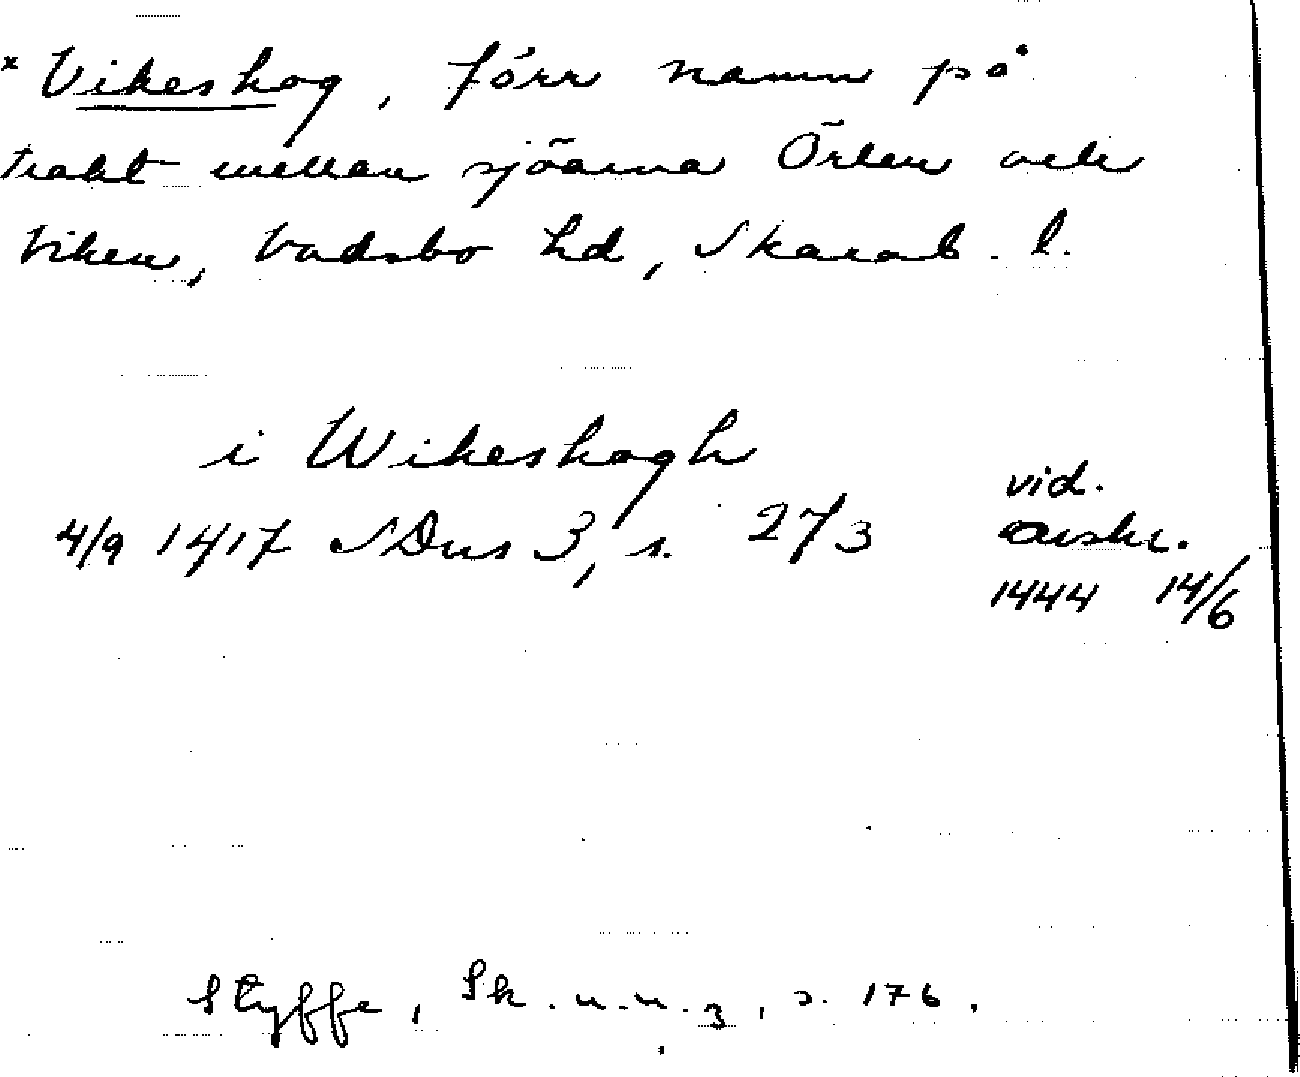 * Vikeshog, förr namn på
trakt mellan sjöarna Örlen och
Viken, Vadsbo hd, Skarab. l.
i Wikeshogh
4/9 1417 SDns 3, s. 273
vid.
avskr.
1444 14/6
Styffe, Sk. u. u. 3, s. 176.